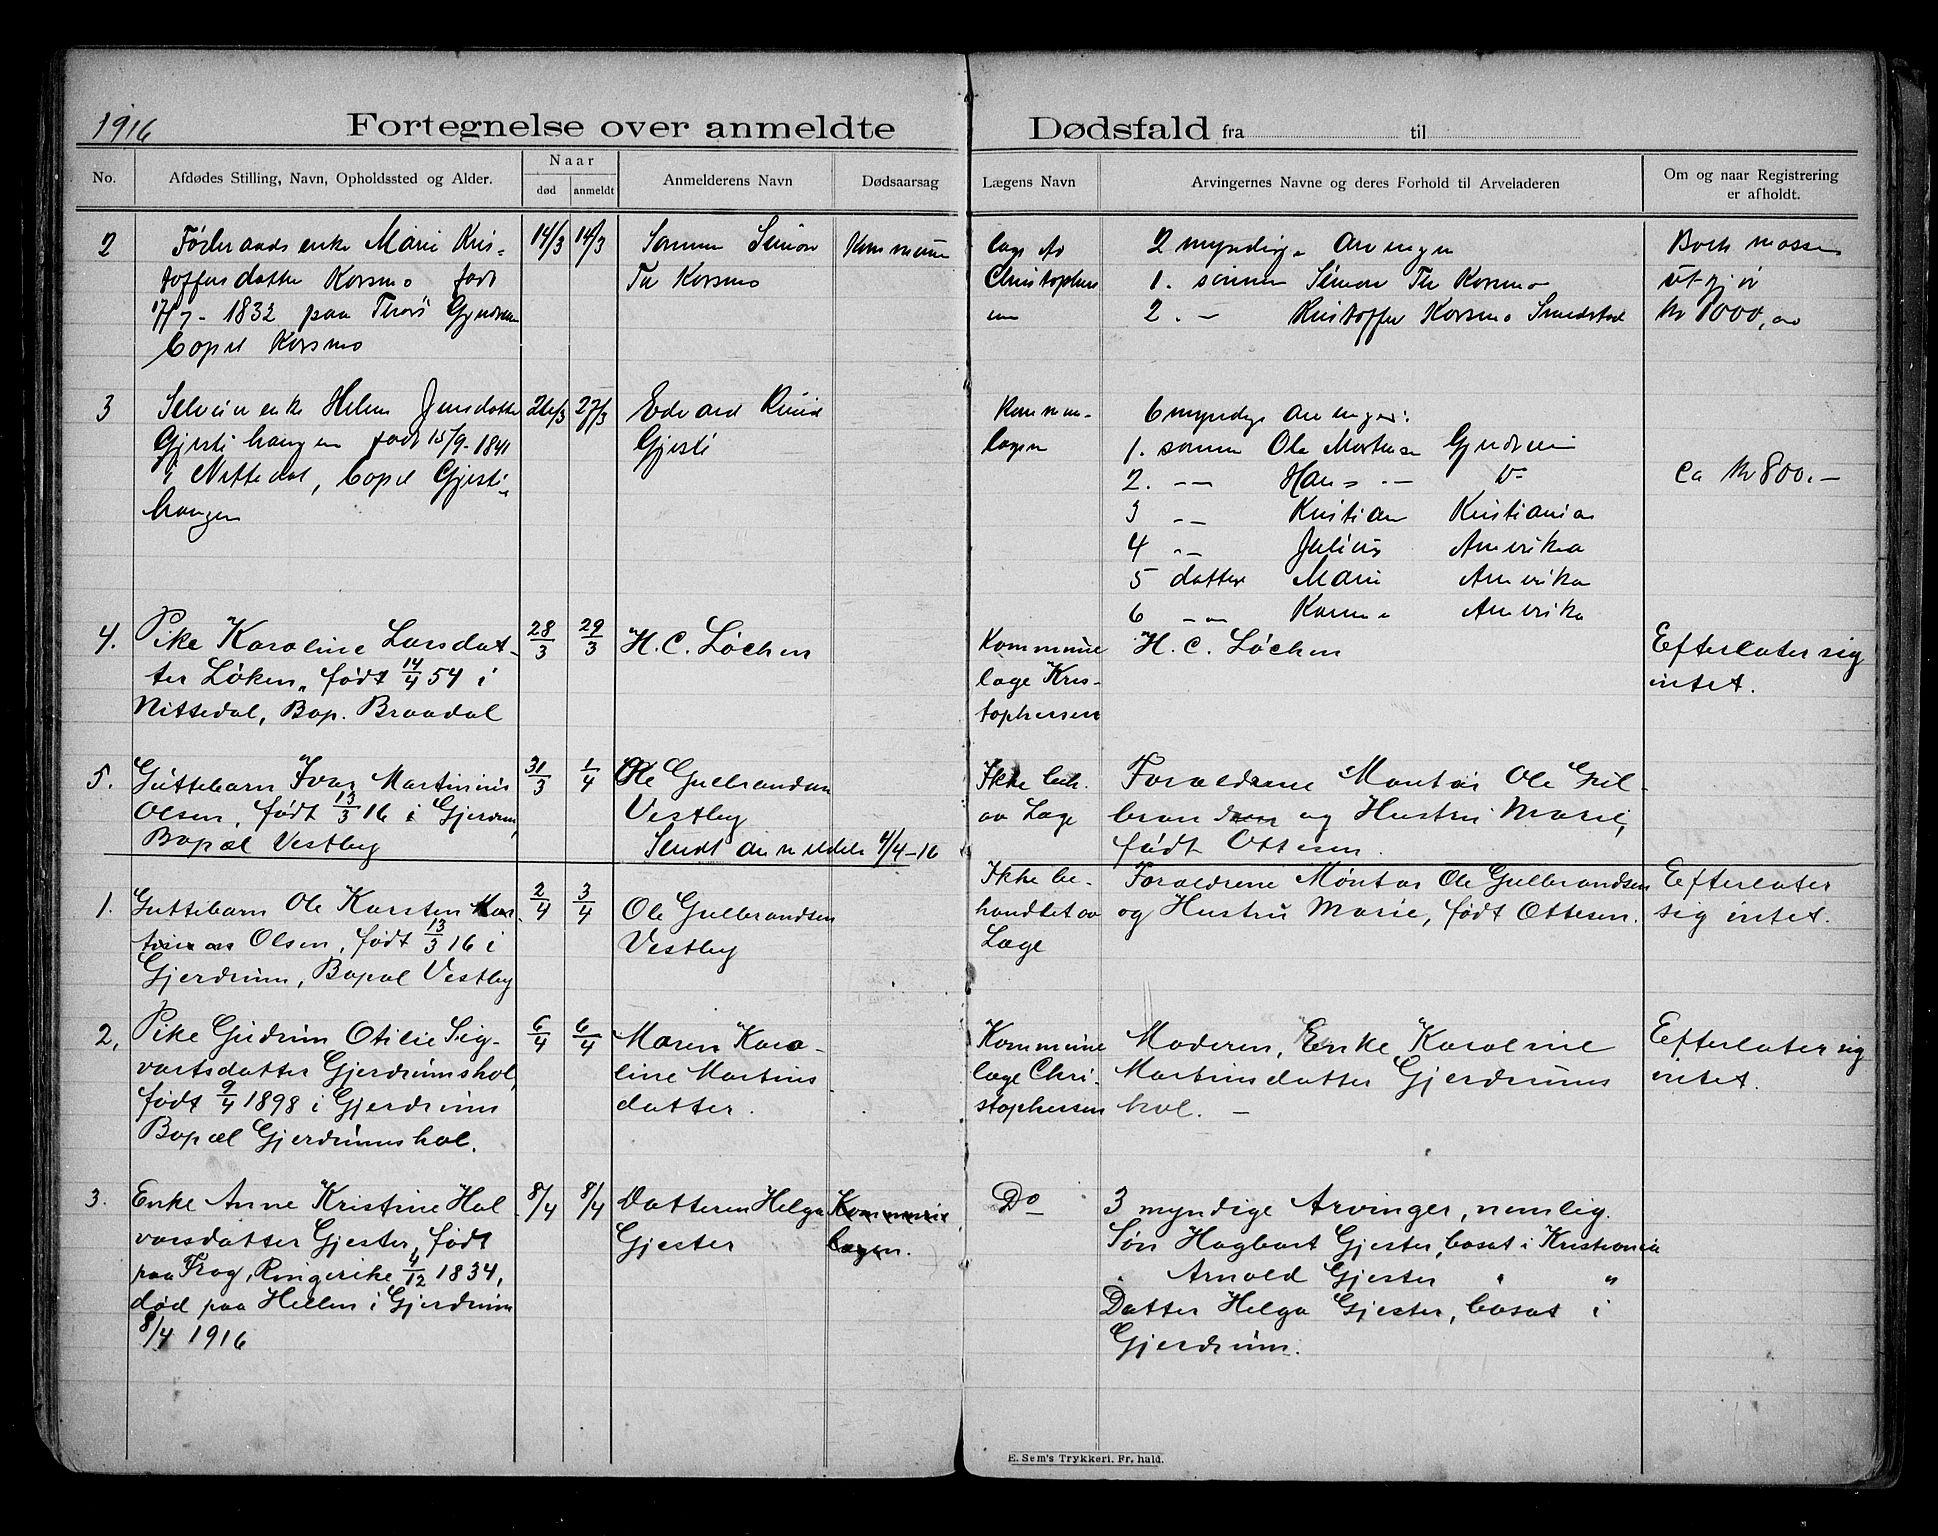 1916
Fortegnelse over anmeldte Dødsfald fra til
No.
Afdødes Stilling, Navn, Opholdssted og Alder.
Naar
død
anmeldt
Anmelderens Navn
Dødsaarsag
Lægens Navn
Arvingernes Navne og deres Forhold til Arveladeren
Om og naar Registrering
er afholdt.
2
enke Marie Kris-
toffersdatter Korsmo født
17/7 - 1832 paa
bopel Korsmo
14/3
14/3
Sønnen Simon
Th Korsmo
læge
Christophersen
2 myndige Arvinger
1. sønnen Simon Th Korsmo
2. - Kristoffer Korsmo
Boets masse
utgjør
kr 1000,00
3
enke Helene Jensdatter
Gjestihaugen født 15/9-1841
i Nittedal, bopel Gjesti-
haugen
26/3
27/3
Edvard
Gjesti
Kommune-
lægen
6 myndige Arvinger:
1. sønnen Ole Mortensen Gjerdrum
2. -- Hans -- Do
3 -- Kristian Kristiania
4 -- Julius Amerika
5 datter Marie Amerika
6 -- Amerika
ca kr 800.-
4.
Pike Karoline Larsdat-
ter Løken, født 14/4 54 i
Nittedal, Bop. Braadal
28/3
29/3
H. C. Løchen
Kommune
læge Kris-
tophersen
H. C. Løchen
Efterlater sig
intet.
5.
Guttebarn Ivar Martinius
Olsen, født 13/3 16 i Gjerdrum,
Bopæl Vestby
31/3
1/4
Ole Gulbrandsen
Vestby
Sendt 4/4-16
Ikke beh.
av Læge
Forældrene Montør Ole Gul-
brandsen og Hustru Marie,
født Ottesen.
1.
Guttebarn Ole Karsten
Olsen, født 13/3 16 i
Gjerdrum, Bopæl Vestby
2/4
3/4
Ole Gulbrandsen
Vestby
Ikke be-
handlet av
Læge
Forældrene Montør Ole Gulbrandsen
og Hustru Marie, født Ottesen.
Efterlater
sig intet.
2,
Pike Gudrun Otilie Sig-
vartsdatter Gjerdrumshol,
født 9/4 1898 i Gjerdrum
Bopæl Gjerdrumshol.
6/4
6/4
Maren Karo-
line Martins
datter.
Kommune
læge Chri-
stophersen
Moderen, Enke Karoline
Martinsdatter Gjerdrums
hol. -
Efterlater sig
intet.
3.
Enke Anne Kristine Hal-
vorsdatter Gjester, født
paa Frog, Ringerike 4/12 1834,
død paa Hellen i Gjerdrum
8/4 1916
8/4
8/4
Datteren Helga
Gjester
Kommune
lægen.
Do
3 myndige Arvinger, nemlig.
Søn Hagbart Gjester, bosat i Kristiania
" Arnold Gjester " "
Datter Helga Gjester, bosat i
Gjerdrum.
E. Sem's Trykkeri. Fr. hald.